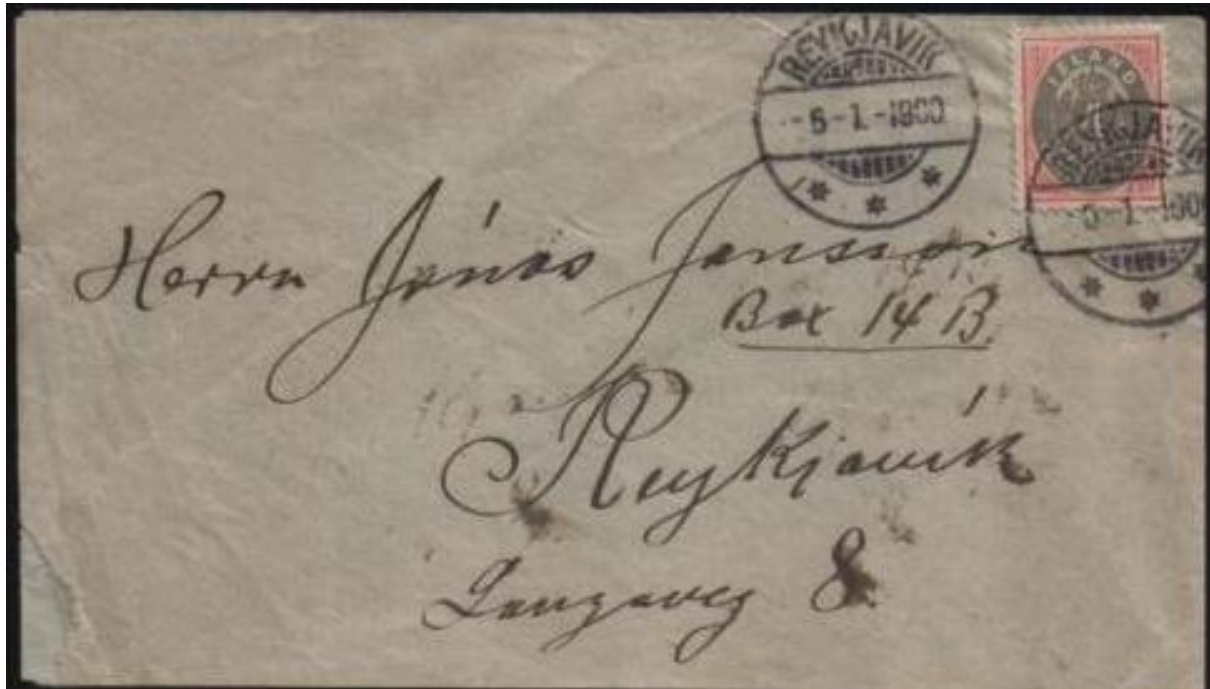 REYKJAVIK
-5-1.-1900
ISLAND
REYKJAVIK
-5-1.-1900
Herrn Jónas Jonsson
Box 14 B.
Reykjavík
Laugaveg 8.